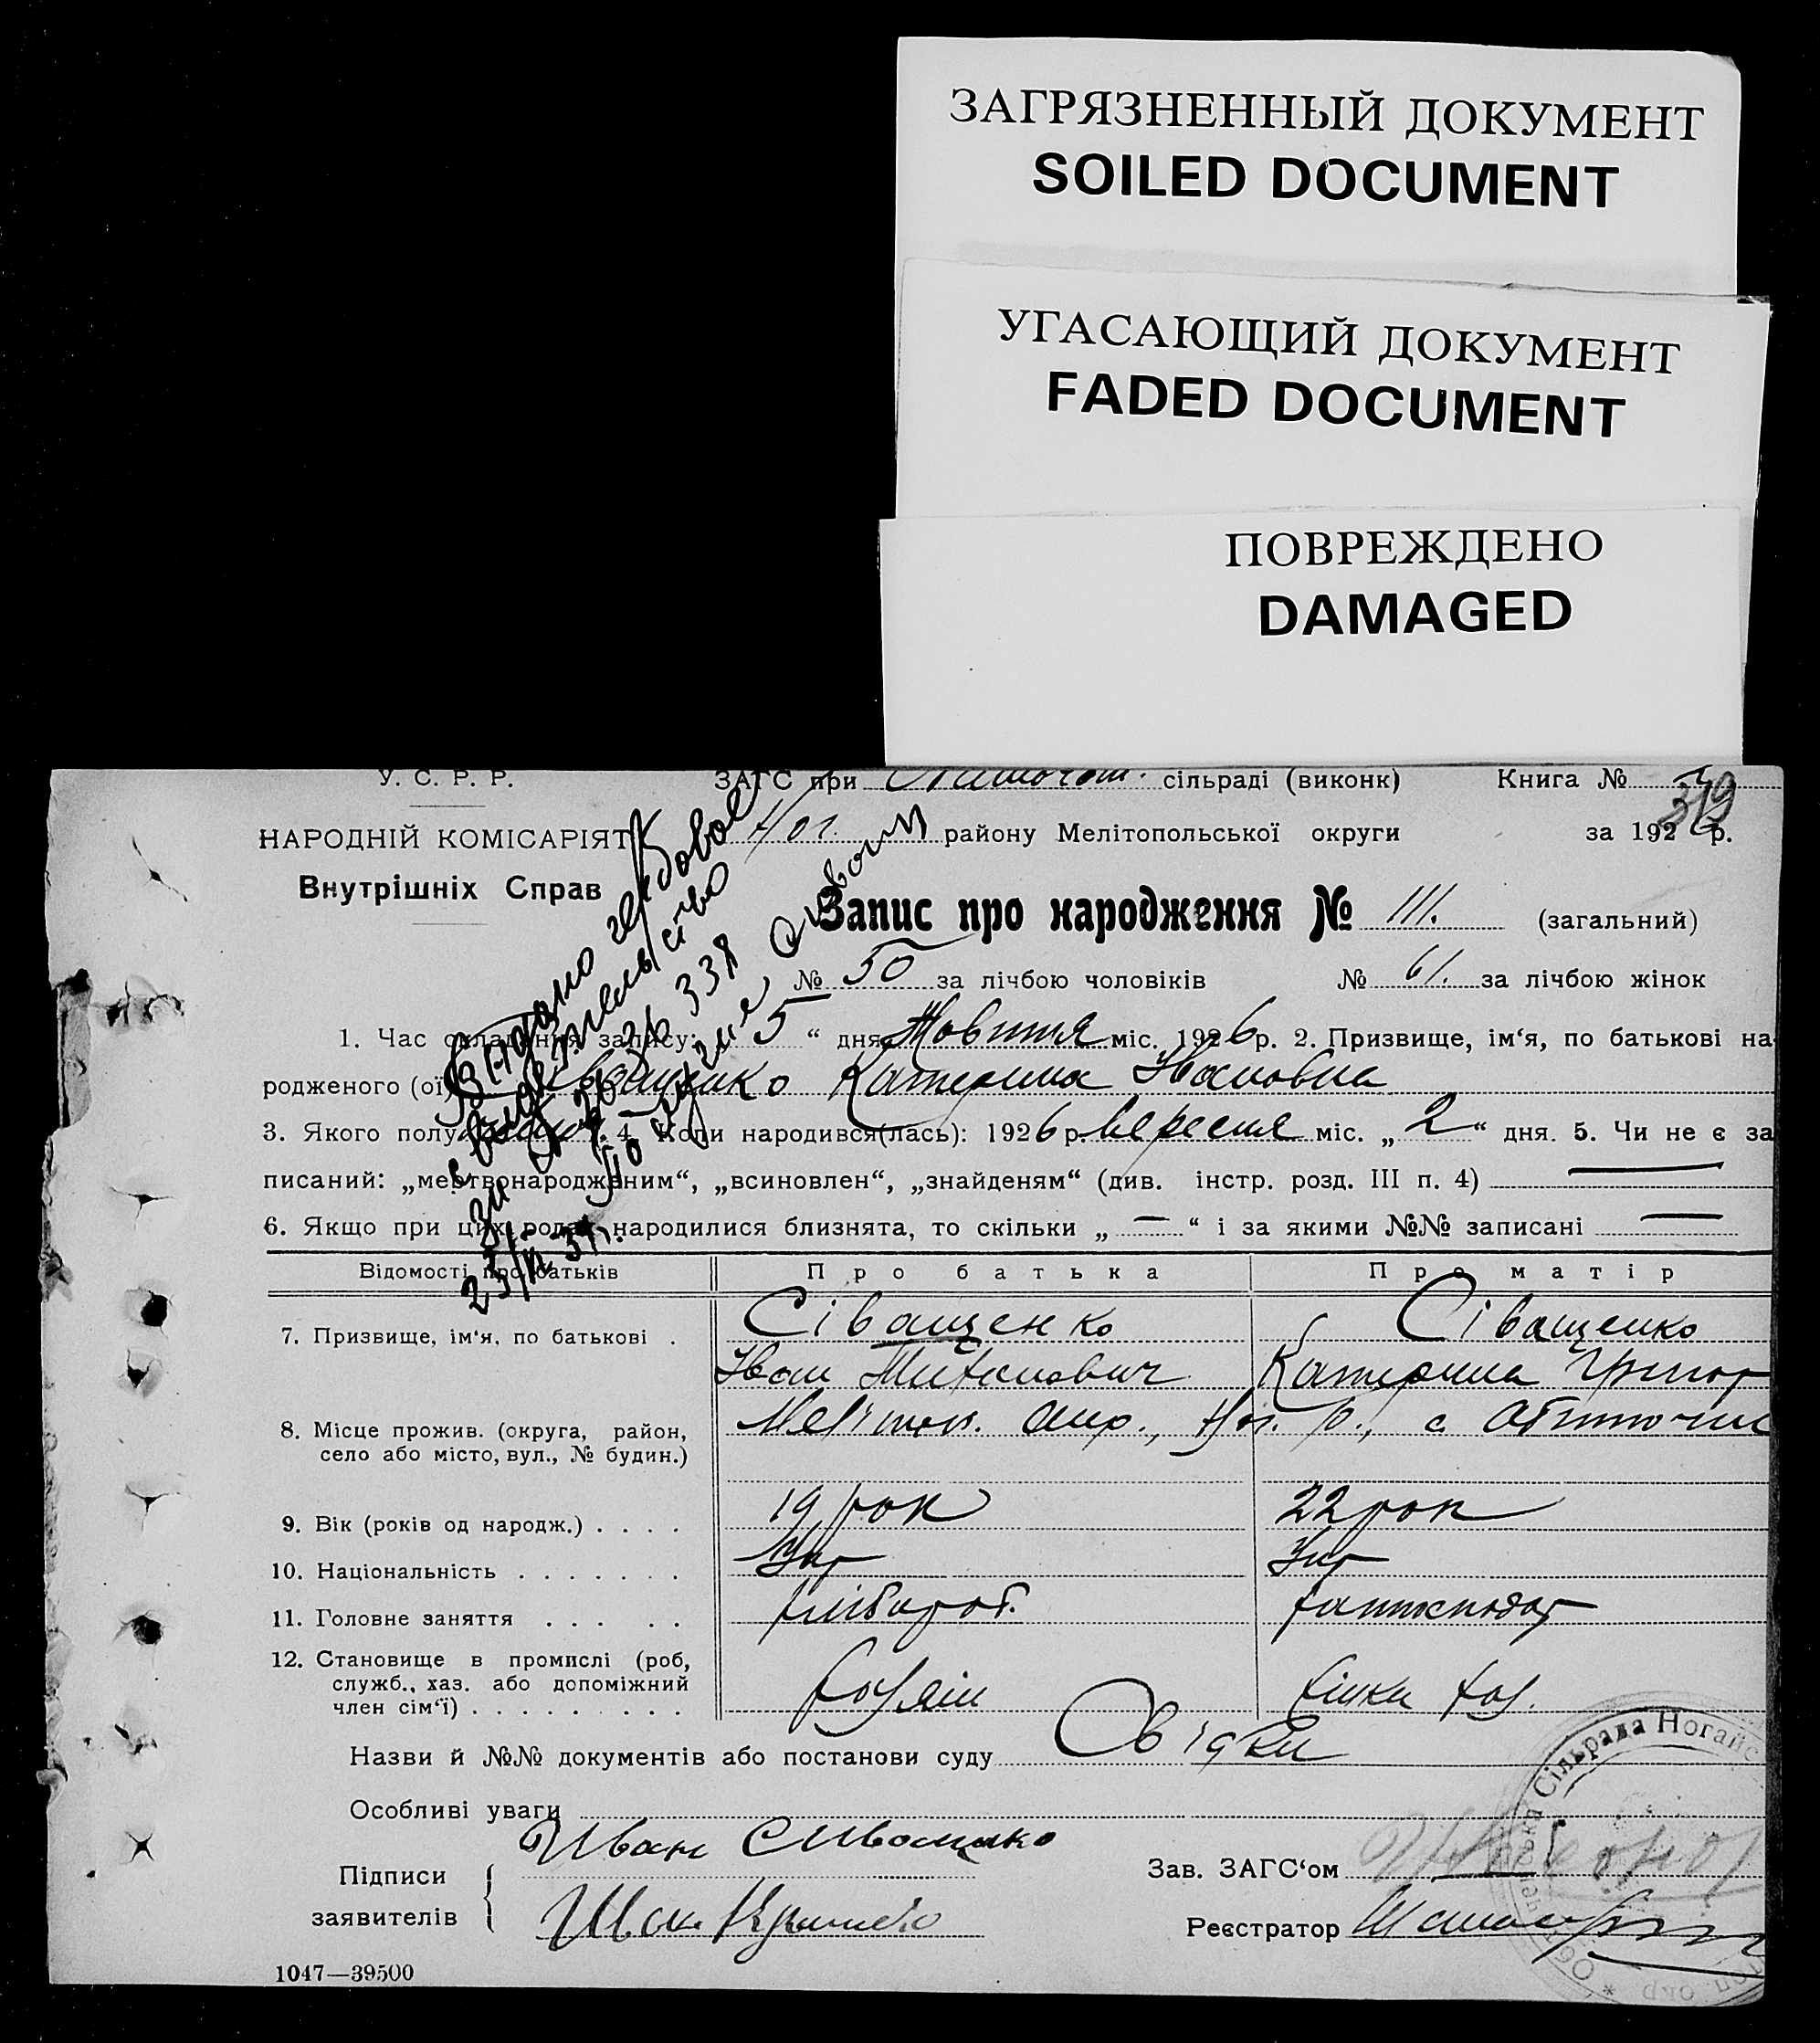 ЗАГРЯЗНЕННЫЙ ДОКУМЕНТ
SOILED DOCUMENT
УГАСАЮЩИЙ ДОКУМЕНТ
FADED DOCUMENT
ПОВРЕЖДЕНО
DAMAGED
У. С. Р. Р. ЗАГС при сільраді (виконк) Книга №
319
НАРОДНІЙ КОМІСАРІЯТ Ног. району Мелітопольської округи за 1926 р.
Внутрішніх Справ
Запис про народження № 111. (загальний)
№ 50 за лічбою чоловіків № 61. за лічбою жінок
1. Час складання запису: 5 “ дня Жовтня міс. 1926 р. 2. Призвище, ім‘я, по батькові на-
родженого (ої) Сіващенко Катерина Івановна
3. Якого полу 4. Коли народився(лась): 1926 р. вересня міс. „ 2 “ дня. 5. Чи не є за
писаний: „мертвонародженим“, „всиновлен“, „знайденям“ (див. інстр. розд. III п. 4) —
6. Якщо при цих родах народилися близнята, то скільки „ — “ і за якими №№ записані —
Видано
свидетельство
338
Відомості про батьків Про батька Про матір
7. Призвище, ім‘я, по батькові . Сіващенко Сіващенко
Іван Катерина Григор
8. Місце прожив. (округа, район, Меліtоп. окр., Ног. р., с. Обиточне
село або місто, вул., № будин.)
9. Вік (років од народж.) . . . . 19 рок 22 рок
10. Національність . . . . . . . Укр Укр
11. Головне заняття . . . . . хлібороб. хатнєподар
12. Становище в промислі (роб,
служб., хаз. або допоміжний хазяїн жінка хаз.
член сім‘ї) . . . . . . . . .
Назви й №№ документів або постанови суду Свідки
Особливі уваги
Иван Сиващенко
Підписи
заявителів
Зав. ЗАГС‘ом
Реєстратор
Сільрада Ногайс
1047—39500